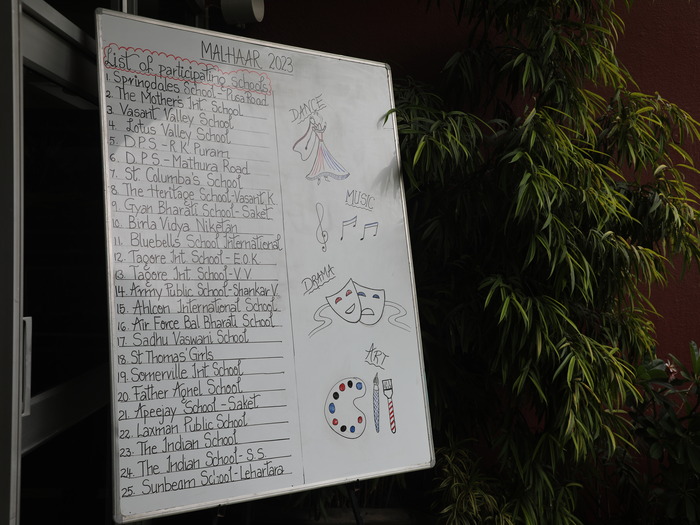 MALHAAR 2023
List of participating schools
1. Springdales School - Pusa Road
2. The Mother's Int School
3. Vasant Valley School
4. Lotus Valley School
5. D.P.S. - R.K. Puram
6. D.P.S. - Mathura Road
7. St Columba's School
8. The Heritage School - Vasant K.
9. Gyan Bharati School - Saket
10. Birla Vidya Niketan
11. Bluebells School International
12. Tagore Int School - E.O.K.
13. Tagore Int School - V.V
14. Army Public School - Shankar V.
15. Ahlcon International School
16. Air Force Bal Bharati School
17. Sadhu Vaswani School
18. St Thomas Girls
19. Somerville Int School
20. Father Agnel School
21. Apeejay School - Saket
22. Laxman Public School
23. The Indian School
24. The Indian School - S.S.
25. Sunbeam School - Lehartara
DANCE
MUSIC
DRAMA
ART